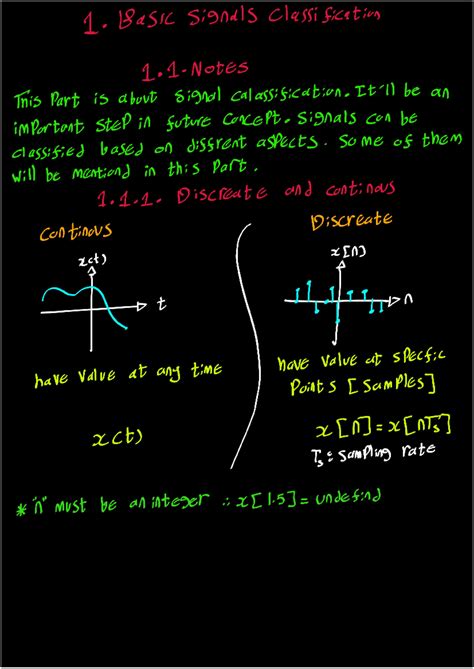 1. Basic Signals Classification
1.1-Notes
This Part is about Signal calassification. It'll be an
important step in future concept. Signals can be
classified based on diffrent aspects. Some of them
will be mentiond in this Part.
1.1.1. Discreate and continous
Continous
x(t)
t
have value at any time
x(t)
Discreate
x[n]
n
have value at specfic
Points [Samples]
x[n]=x[nTs]
Ts: sampling rate
* "n" must be an integer ∴ x[1.5]= undefind